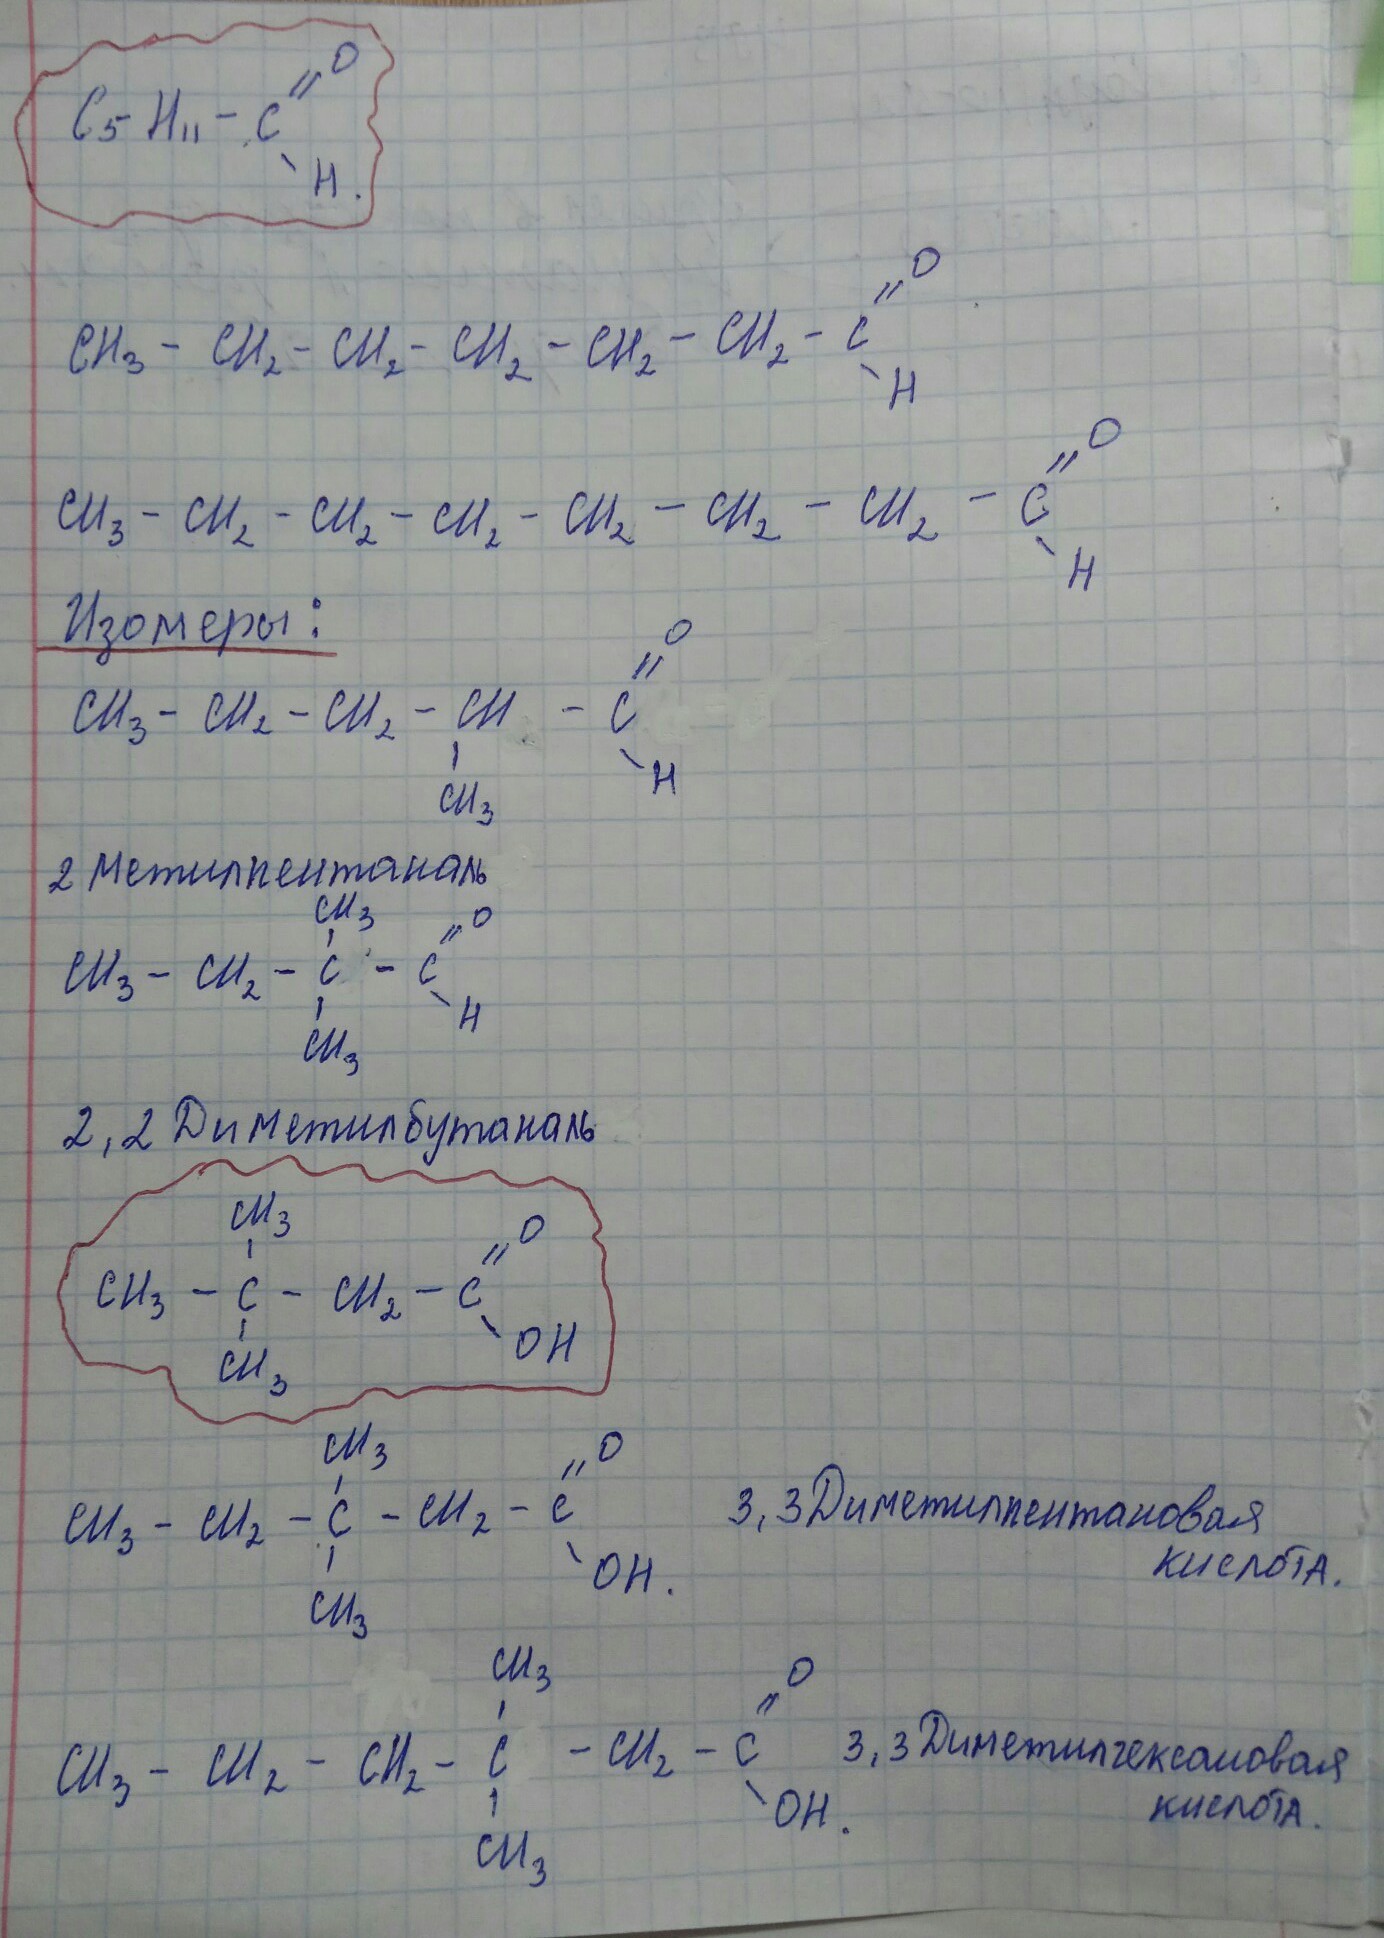 C5 H11 - C
=O
- H.
CH3 - CH2 - CH2 - CH2 - CH2 - CH2 - C
=O
- H
CH3 - CH2 - CH2 - CH2 - CH2 - CH2 - CH2 - C
=O
- H
Изомеры:
CH3 - CH2 - CH2 - CH - C
=O
- H
CH3
2 Метилпентаналь
CH3
CH3 - CH2 - C - C
=O
- H
CH3
2,2 Диметилбутаналь
CH3
CH3 - C - CH2 - C
=O
- OH
CH3
CH3
CH3 - CH2 - C - CH2 - C
=O
- OH.
CH3
3,3 Диметилпентановая
кислота.
CH3
CH3 - CH2 - CH2 - C - CH2 - C
=O
- OH.
CH3
3,3 Диметилгексановая
кислота.